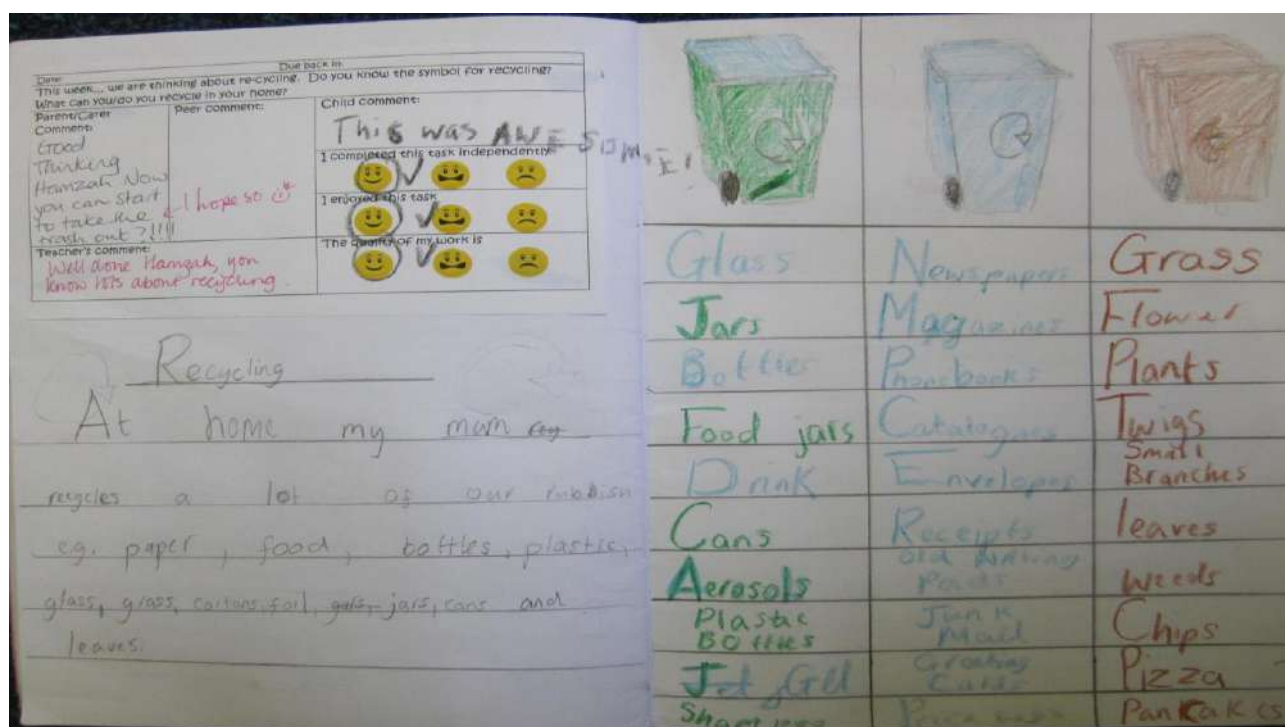 Date: Due back in:
This week... we are thinking about re-cycling. Do you know the symbol for recycling?
What can you/do you recycle in your home?
Parent/Carer
Comment:
Good
Thinking
Hamzah Now
you can start
to take the
trash out?!!!!
Peer comment:
I hope so
Child comment:
This was AWESOME!
I completed this task independently
I enjoyed this task
The quality of my work is
Teacher's comment:
Well done Hamzah, you
know lots about recycling.
Recycling
At home my mum
recycles a lot of our rubbish
eg. paper, food, bottles, plastic,
glass, grass, cartons, foil, jars, cans and
leaves.
Glass
Jars
Bottles
Food jars
Drink
Cans
Aerosols
Plastic
Bottles
Gel
Newspapers
Magazines
Phonebooks
Catalogues
Envelopes
Receipts
Old Writing
Pads
Junk
Mail
Greating
Cards
Grass
Flower
Plants
Twigs
Small
Branches
leaves
Weeds
Chips
Pizza
Pankakes